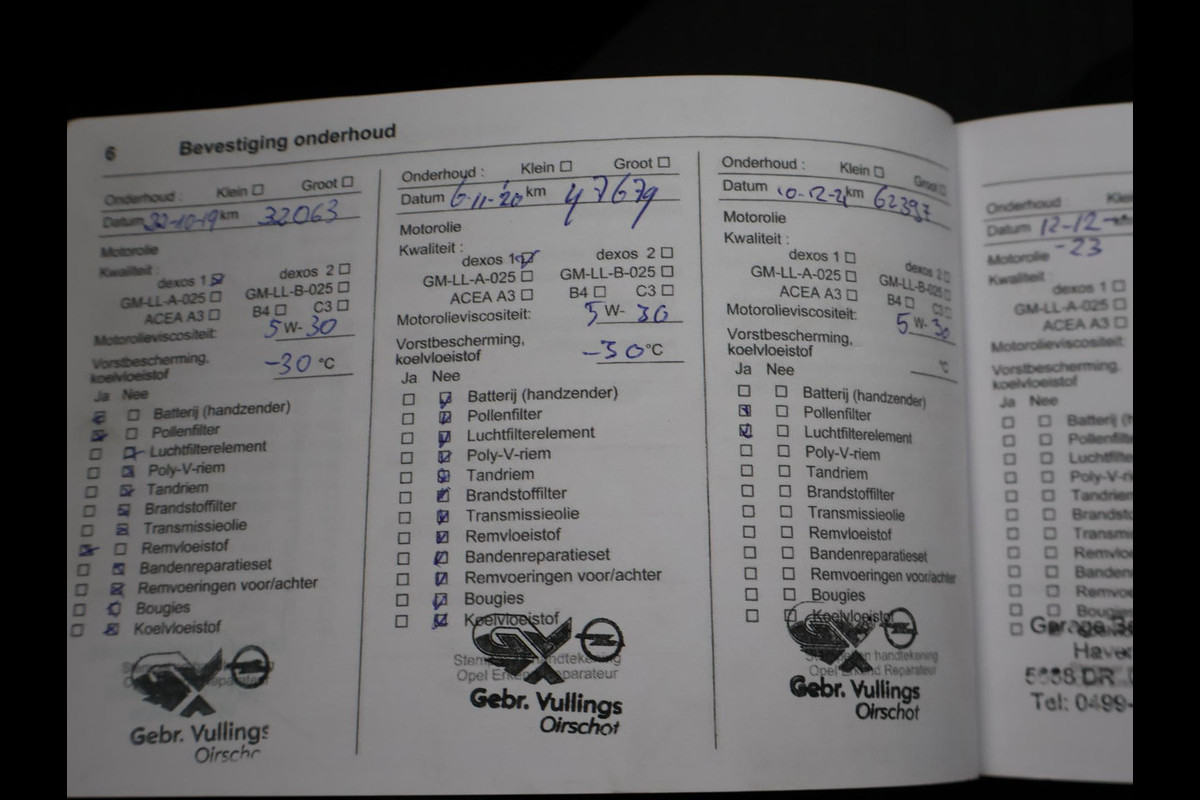 6 Bevestiging onderhoud
Onderhoud : Klein Groot
Datum 22-10-19 km 32063
Motorolie
Kwaliteit :
dexos 1 dexos 2
GM-LL-A-025 GM-LL-B-025
ACEA A3 B4 C3
Motorolieviscositeit: 5 W-30
Vorstbescherming,
koelvloeistof -30 °C
Ja Nee
Batterij (handzender)
Pollenfilter
Luchtfilterelement
Poly-V-riem
Tandriem
Brandstoffilter
Transmissieolie
Remvloeistof
Bandenreparatieset
Remvoeringen voor/achter
Bougies
Koelvloeistof
Gebr. Vullings
Oirscho
Onderhoud : Klein Groot
Datum 6-11-20 km 47679
Motorolie
Kwaliteit :
dexos 1 dexos 2
GM-LL-A-025 GM-LL-B-025
ACEA A3 B4 C3
Motorolieviscositeit: 5 W- 30
Vorstbescherming,
koelvloeistof -30 °C
Ja Nee
Batterij (handzender)
Pollenfilter
Luchtfilterelement
Poly-V-riem
Tandriem
Brandstoffilter
Transmissieolie
Remvloeistof
Bandenreparatieset
Remvoeringen voor/achter
Bougies
Koelvloeistof
GX
Stempel handtekening
Opel Erkend Reparateur
Gebr. Vullings
Oirschot
Onderhoud : Klein Groot
Datum 10-12-21 km 62397
Motorolie
Kwaliteit :
dexos 1 dexos 2
GM-LL-A-025 GM-LL-B-025
ACEA A3 B4 C3
Motorolieviscositeit: 5 W- 30
Vorstbescherming,
koelvloeistof °C
Ja Nee
Batterij (handzender)
Pollenfilter
Luchtfilterelement
Poly-V-riem
Tandriem
Brandstoffilter
Transmissieolie
Remvloeistof
Bandenreparatieset
Remvoeringen voor/achter
Bougies
Koelvloeistof
handtekening
Opel Erkend Reparateur
Gebr. Vullings
Oirschot
Onderhoud : Kle
Datum 12-12
Motorolie -23
Kwaliteit :
dexos 1
GM-LL-A-025
ACEA A3
Motorolieviscositeit:
Vorstbescherming,
koelvloeistof
Ja Nee
Batterij (h
Pollenfilte
Luchtfilte
Poly-V-r
Tandrien
Brandsto
Transmi
Remvlo
Banden
Remvoe
Bougie
Garage
Have
DR
Tel: 0499-